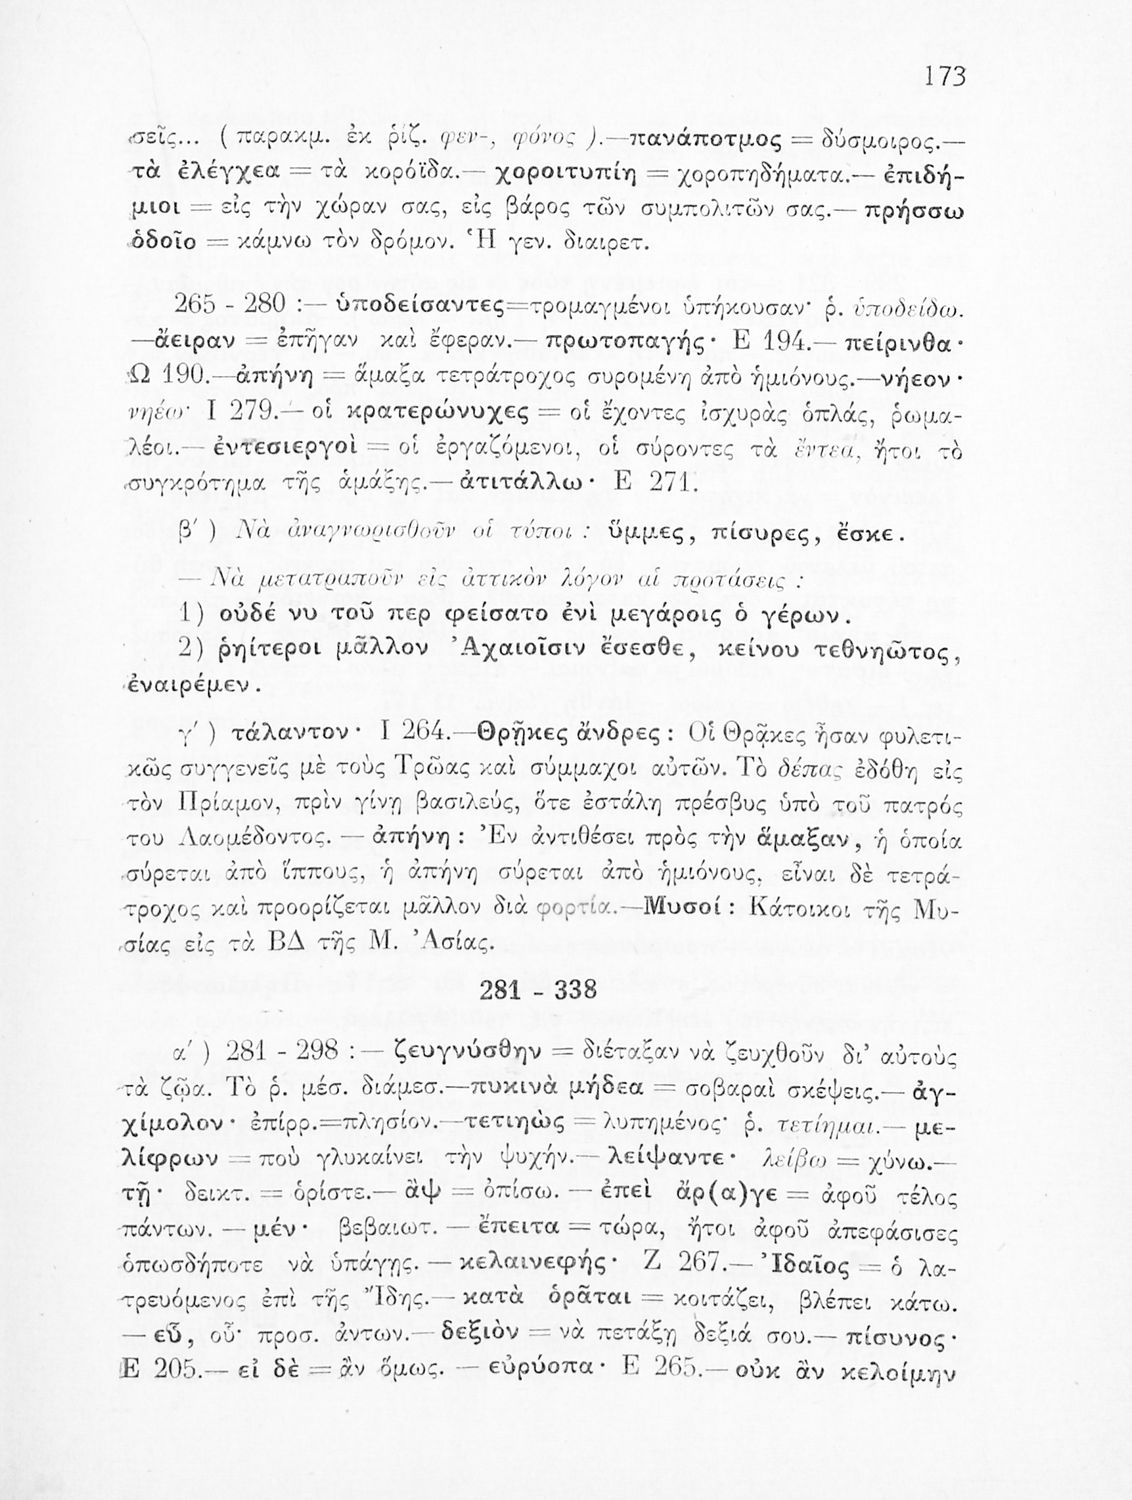 173
σεῖς... ( παρακμ. ἐκ ῥίζ. φεν-, φόνος ).—πανάποτμος = δύσμοιρος.—
τὰ ἐλέγχεα = τὰ κορόϊδα.— χοροιτυπίη = χοροπηδήματα.— ἐπιδή-
μιοι = εἰς τὴν χώραν σας, εἰς βάρος τῶν συμπολιτῶν σας.— πρήσσω
ὁδοῖο = κάμνω τὸν δρόμον. Ἡ γεν. διαιρετ.
265 - 280 :— ὑποδείσαντες=τρομαγμένοι ὑπήκουσαν· ῥ. ὑποδείδω.
—ἄειραν = ἐπῆγαν καὶ ἔφεραν.— πρωτοπαγής· Ε 194.— πείρινθα·
Ω 190.—ἀπήνη = ἅμαξα τετράτροχος συρομένη ἀπὸ ἡμιόνους.—νήεον·
νηέω· Ι 279.— οἱ κρατερώνυχες = οἱ ἔχοντες ἰσχυρὰς ὁπλάς, ῥωμα-
λέοι.— ἐντεσιεργοὶ = οἱ ἐργαζόμενοι, οἱ σύροντες τὰ ἔντεα, ἤτοι τὸ
συγκρότημα τῆς ἁμάξης.— ἀτιτάλλω· Ε 271.
β΄ ) Νὰ ἀναγνωρισθοῦν οἱ τύποι : ὔμμες, πίσυρες, ἔσκε.
— Νὰ μετατραποῦν εἰς ἀττικὸν λόγον αἱ προτάσεις :
1) οὐδέ νυ τοῦ περ φείσατο ἐνὶ μεγάροις ὁ γέρων.
2) ῥηίτεροι μᾶλλον Ἀχαιοῖσιν ἔσεσθε, κείνου τεθνηῶτος,
ἐναιρέμεν.
γ΄ ) τάλαντον· Ι 264.—Θρῇκες ἄνδρες : Οἱ Θρᾷκες ἦσαν φυλετι-
κῶς συγγενεῖς μὲ τοὺς Τρῶας καὶ σύμμαχοι αὐτῶν. Τὸ δέπας ἐδόθη εἰς
τὸν Πρίαμον, πρὶν γίνῃ βασιλεύς, ὅτε ἐστάλη πρέσβυς ὑπὸ τοῦ πατρός
του Λαομέδοντος. — ἀπήνη : Ἐν ἀντιθέσει πρὸς τὴν ἅμαξαν, ἡ ὁποία
σύρεται ἀπὸ ἵππους, ἡ ἀπήνη σύρεται ἀπὸ ἡμιόνους, εἶναι δὲ τετρά-
τροχος καὶ προορίζεται μᾶλλον διὰ φορτία.—Μυσοί : Κάτοικοι τῆς Μυ-
σίας εἰς τὰ ΒΔ τῆς Μ. Ἀσίας.
281 - 338
α΄ ) 281 - 298 :— ζευγνύσθην = διέταξαν νὰ ζευχθοῦν δι’ αὐτοὺς
τὰ ζῷα. Τὸ ῥ. μέσ. διάμεσ.—πυκινὰ μήδεα = σοβαραὶ σκέψεις.— ἀγ-
χίμολον· ἐπίρρ.=πλησίον.—τετιηὼς = λυπημένος· ῥ. τετίημαι.— με-
λίφρων = ποὺ γλυκαίνει τὴν ψυχήν.— λείψαντε· λείβω = χύνω.—
τῆ· δεικτ. = ὁρίστε.— ἂψ = ὀπίσω. — ἐπεὶ ἄρ(α)γε = ἀφοῦ τέλος
πάντων. — μέν· βεβαιωτ. — ἔπειτα = τώρα, ἤτοι ἀφοῦ ἀπεφάσισες
ὁπωσδήποτε νὰ ὑπάγῃς. — κελαινεφής· Ζ 267.— Ἰδαῖος = ὁ λα-
τρευόμενος ἐπὶ τῆς Ἴδης.— κατὰ ὁρᾶται = κοιτάζει, βλέπει κάτω.
— εὗ, οὗ· προσ. ἀντων.— δεξιὸν = νὰ πετάξῃ δεξιά σου.— πίσυνος·
Ε 205.— εἰ δὲ = ἂν ὅμως. — εὐρύοπα· Ε 265.— οὐκ ἂν κελοίμην